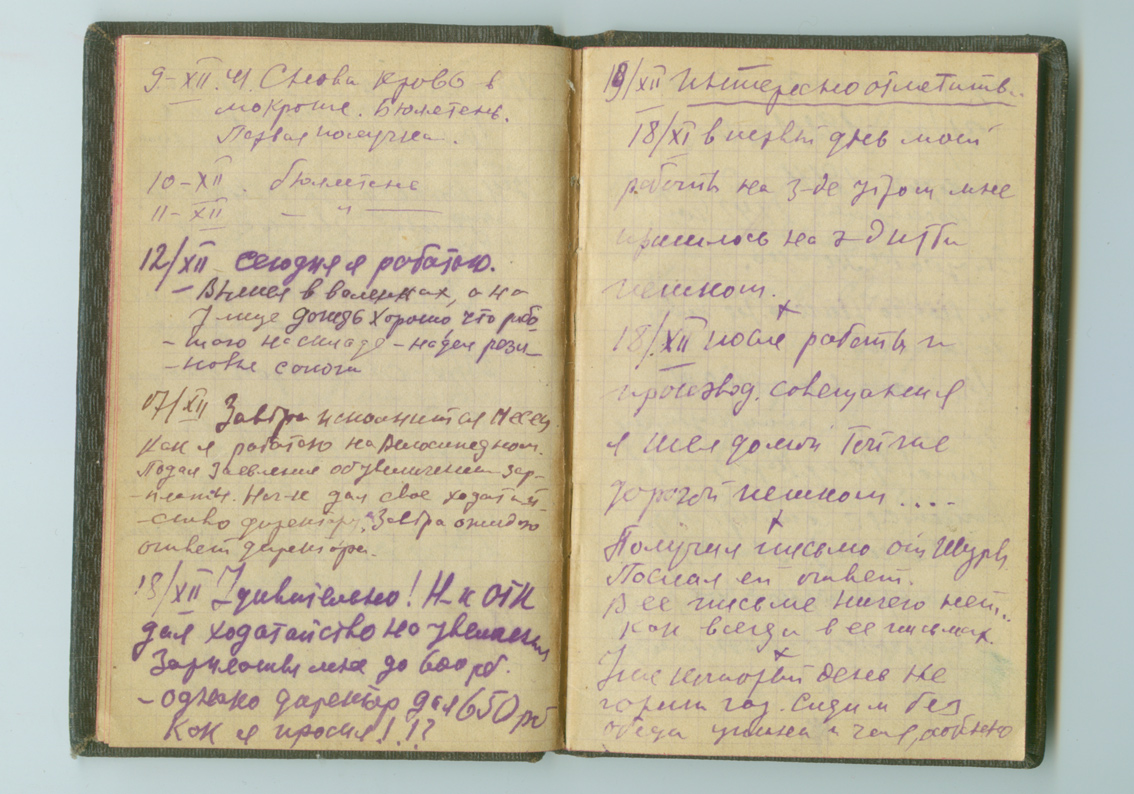 9-XII. 41. Снова кровь в
мокроте. Бюлетень.
Первая получка.
10-XII. бюлетень
11-XII — " —
12/XII сегодня я работаю.
- Вышел в валенках, а на
улице дождь хорошо, что рабо
- таю на складе - надел рези-
- новые сапоги
17/XII Завтра исполнится месяц
Как я работаю на Велосипедном.
Подал заявление об увеличении зар-
- платы. Нач-к дал свое ходатай-
- ство директору. Завтра ожидаю
ответ директора.
18/XII Удивительно! Н-к ОТК
дал ходатайство на увеличен
Зарплаты мне до 600 рб.
- однако директор дал 650 рб
Как я просил!.!?
19/XII Интересно отметить..
18/XI в первый день моей
работы на з-де утром мне
пришлось на з-д итти
пешком.
х
18/XII после работы и
производ. совещания
я шел домой той же
дорогой пешком ....
х
Получил письмо от Шуры
Послал ей ответ.
В ее письме ничего нет..
Как всегда в ее письмах.
х
Уже который день не
горит газ. Сидим без
обеда ужина и чая,